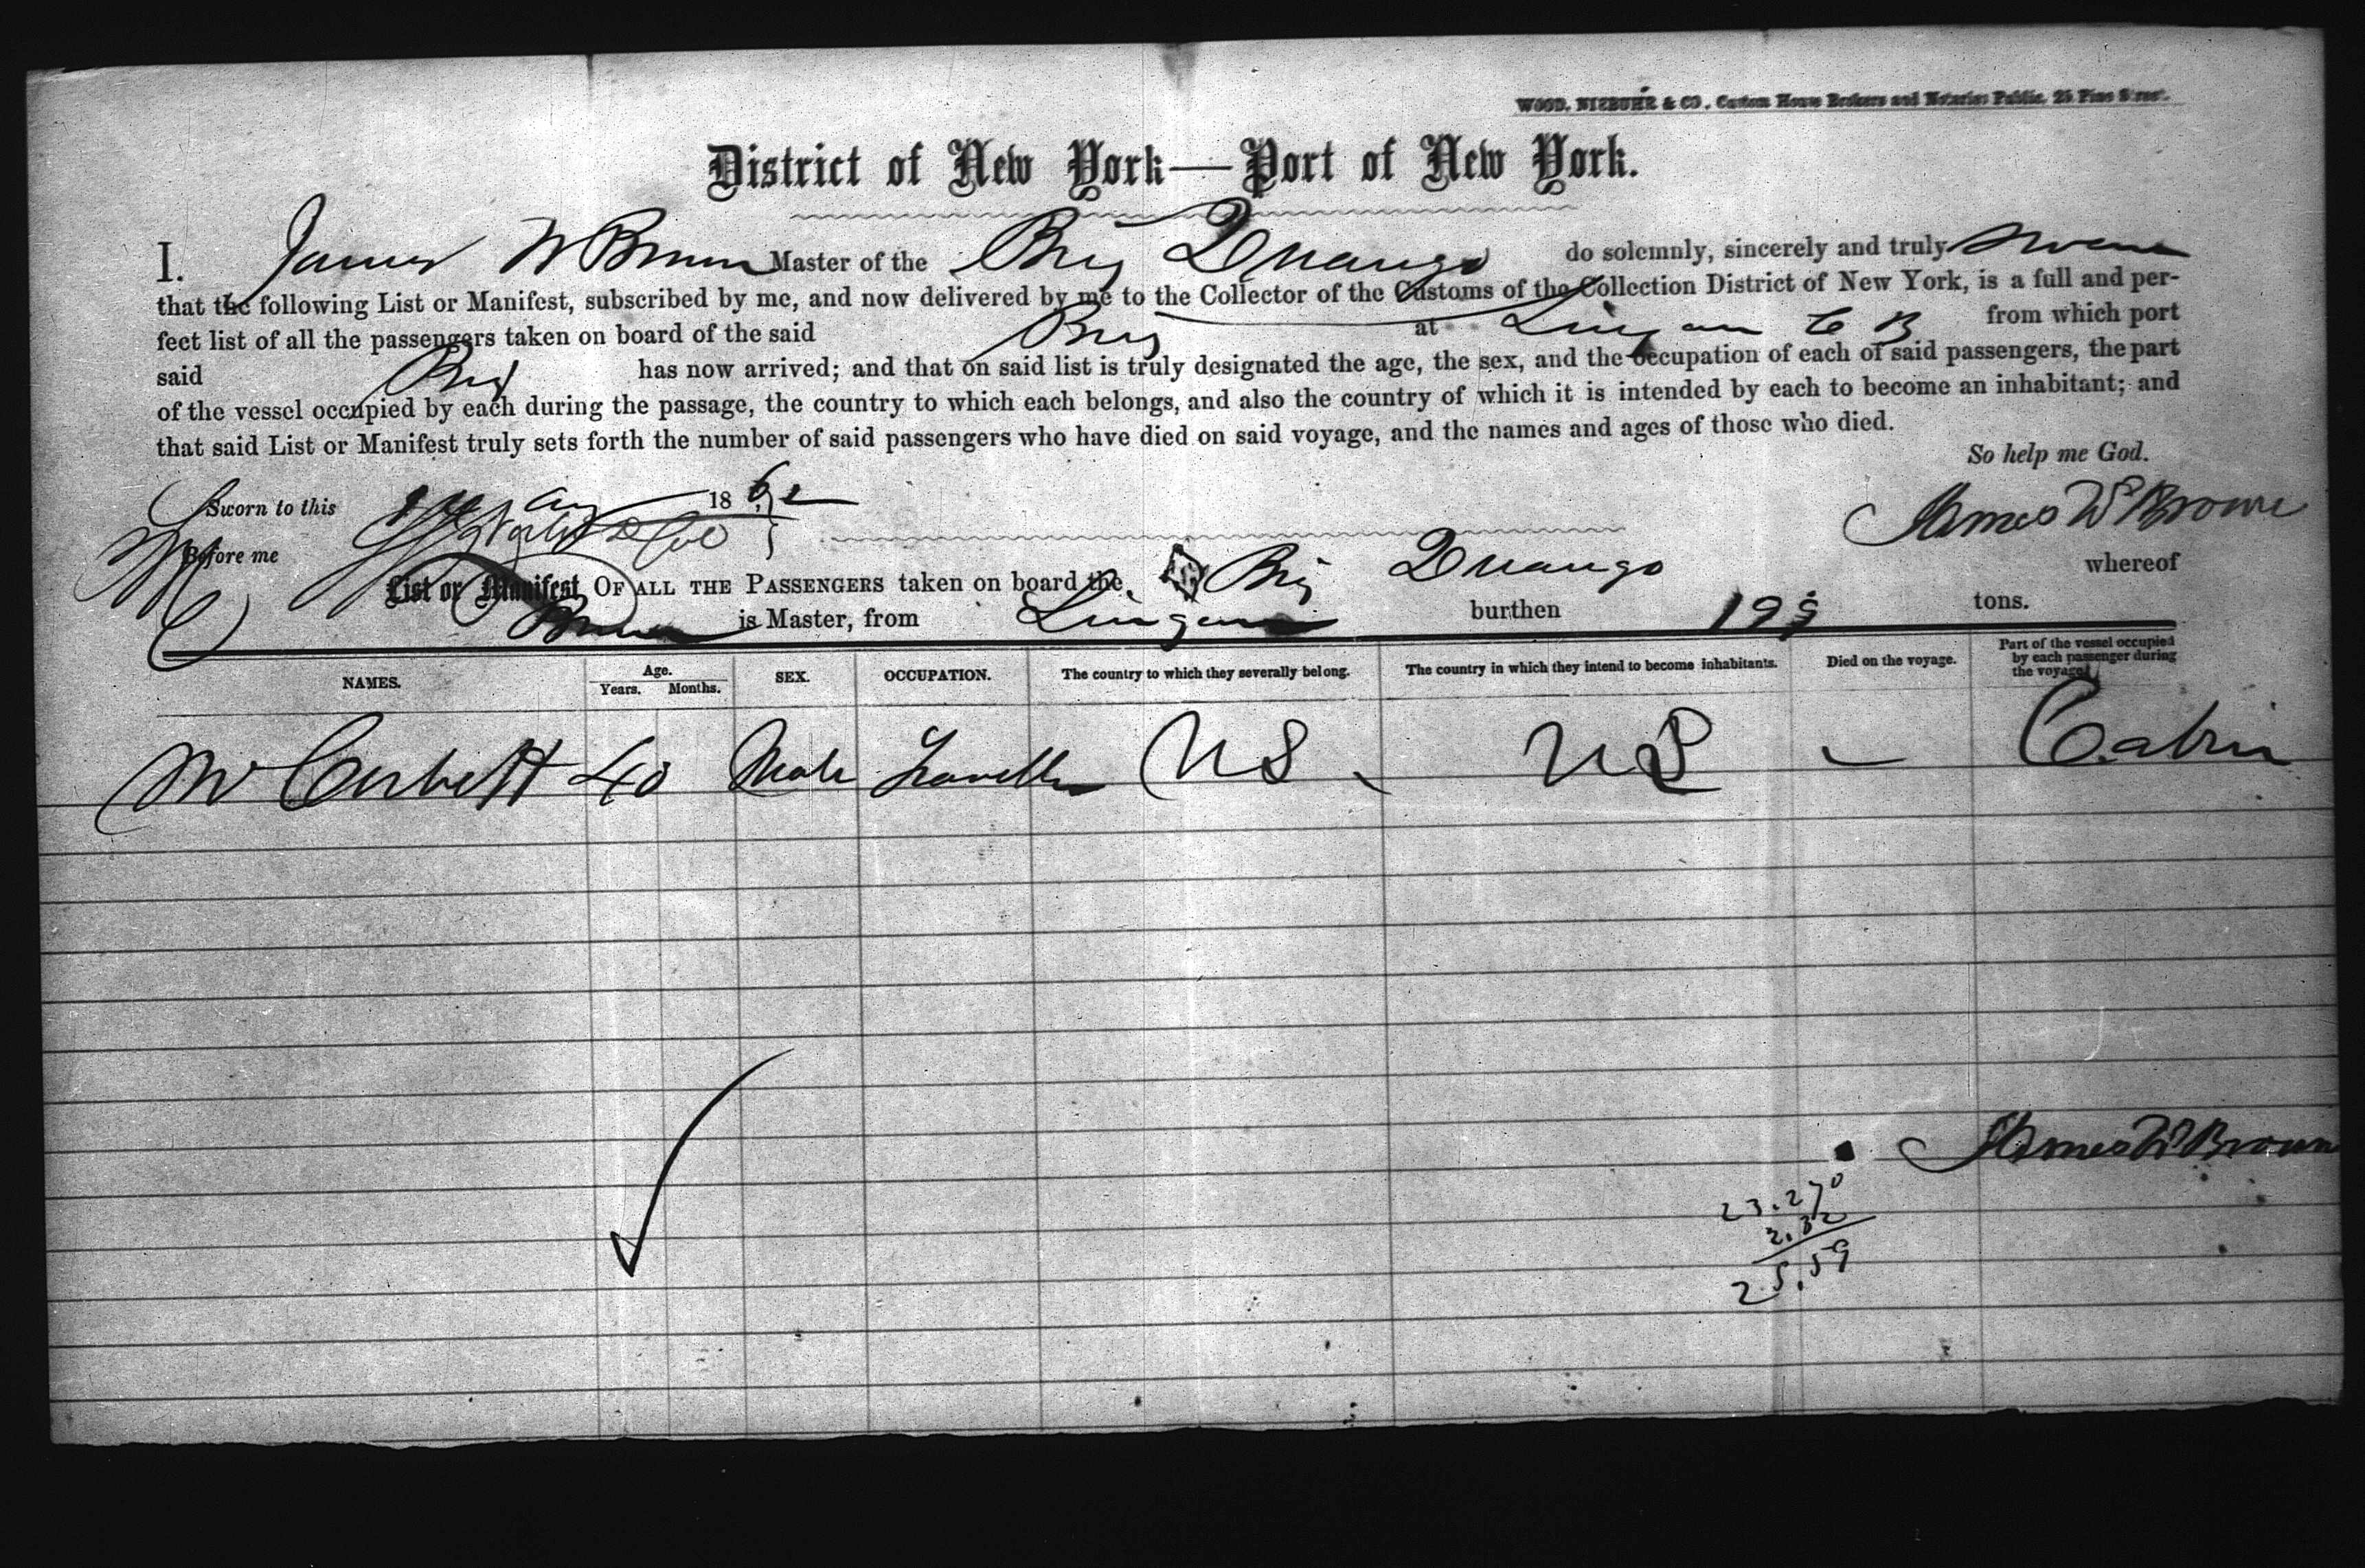 WOOD, NIEBUHR & CO., Custom House Brokers and Notaries Public, 25 Pine Street.
District of New York—Port of New York.
I, James W Brown Master of the Brig Durango do solemnly, sincerely and truly swear
that the following List or Manifest, subscribed by me, and now delivered by me to the Collector of the Customs of the Collection District of New York, is a full and per-
fect list of all the passengers taken on board of the said Brig at Lingan C B from which port
said Brig has now arrived; and that on said list is truly designated the age, the sex, and the occupation of each of said passengers, the part
of the vessel occupied by each during the passage, the country to which each belongs, and also the country of which it is intended by each to become an inhabitant; and
that said List or Manifest truly sets forth the number of said passengers who have died on said voyage, and the names and ages of those who died.
So help me God.
Sworn to this Aug 1862
James W Brown
Before me
List or Manifest OF ALL THE PASSENGERS taken on board the Brig Durango whereof
Brown is Master, from Lingan burthen 199 tons.
NAMES. Age. Years. Months. SEX. OCCUPATION. The country to which they severally belong. The country in which they intend to become inhabitants. Died on the voyage. Part of the vessel occupied by each passenger during the voyage.
Mr Corbett 40 Male Traveller US US — Cabin
James W Brown
23.270
2.32
25.59